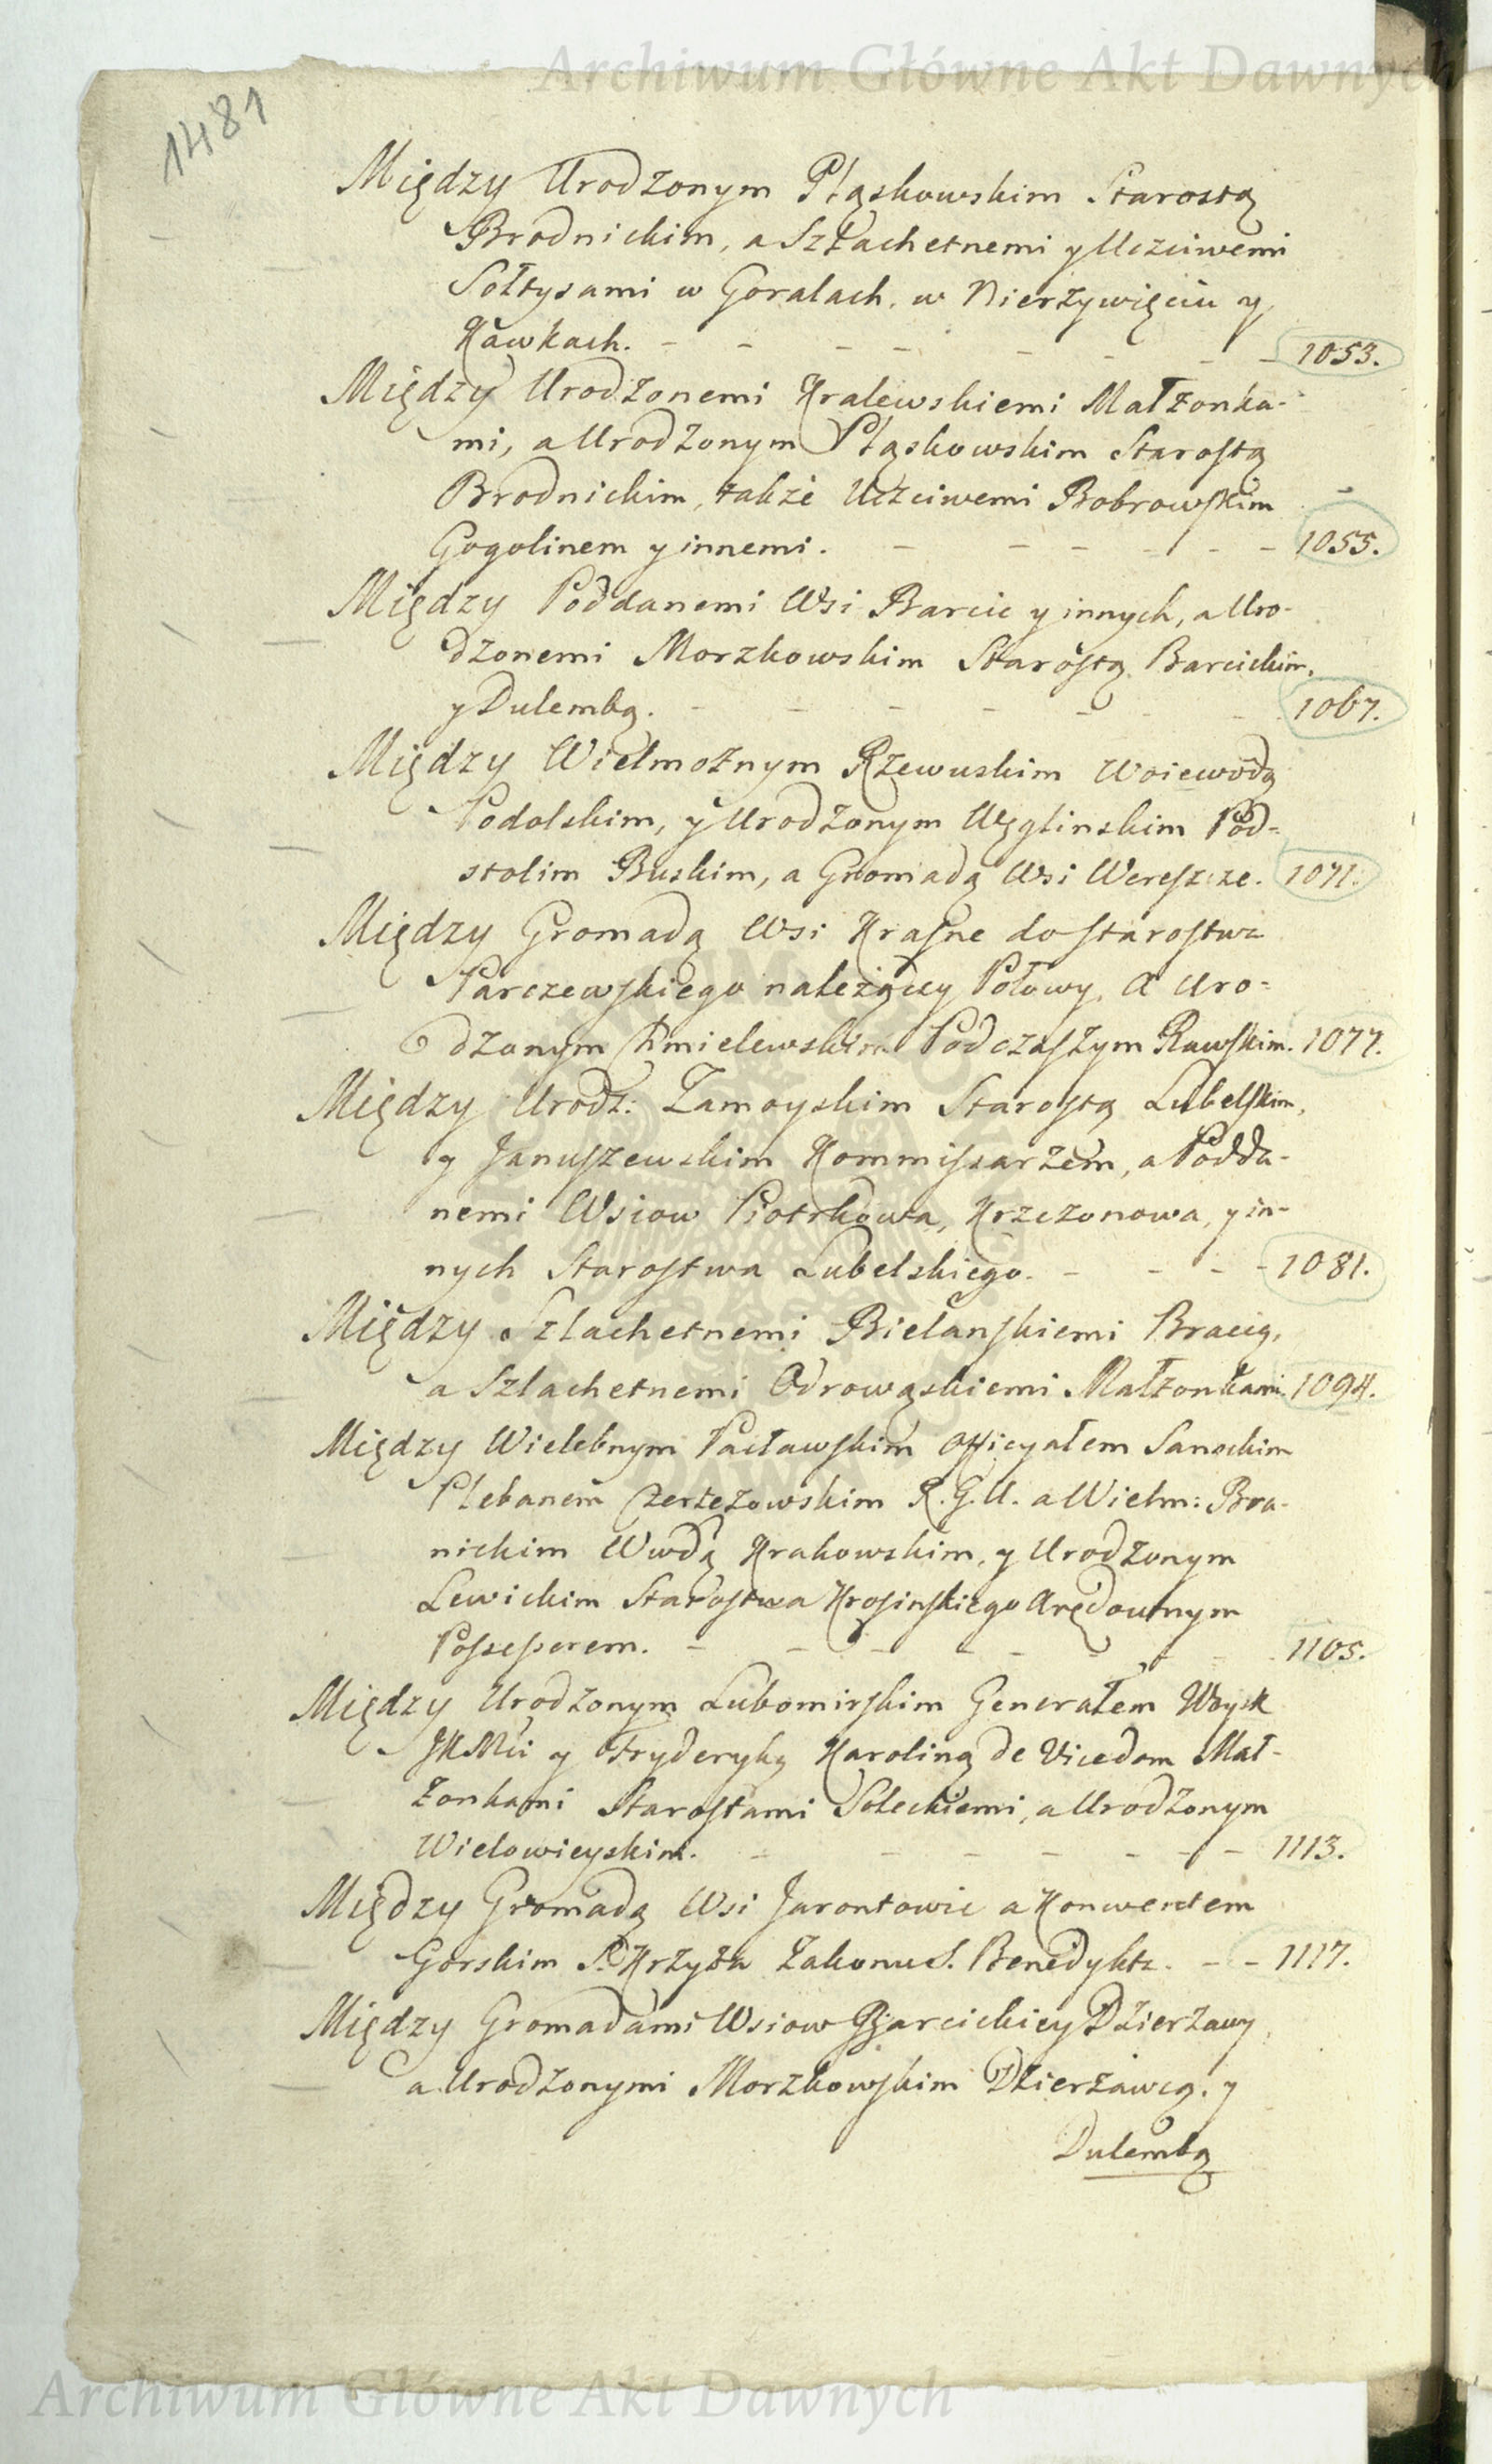 Archiwum Główne Akt Dawnych
1481
Między Urodzonym Pląskowskim Starostą
Brodnickim, a Szlachetnemi y Uczciwemi
Sołtysami w Goralach, w Nierzywięciu y
Kawkach. - - - - - - - - 1053.
Między Urodzonemi Kralewskiemi Małżonka-
mi, a Urodzonym Pląskowskim Starostą
Brodnickim, także Uczciwemi Bobrowskim
Gogolinem y innemi. - - - - - - 1055.
Między Poddanemi Wsi Barcic y innych, a Uro-
dzonemi Morzkowskim Starostą Barcickim,
y Dulembą. - - - - - - - 1067.
Między Wielmożnym Rzewuskim Woiewodą
Podolskim, y Urodzonym Węglinskim Pod-
stolim Buskim, a Gromadą Wsi Wereszcze. 1071.
Między Gromadą Wsi Krasne do Starostwa
Parczewskiego należący Połowy, a Uro-
dzonym Chmielewskim Podczaszym Rawskim. 1077.
Między Urodz: Zamoyskim Starostą Lubelskim,
y Januszewskim Kommissarzem, a Podda-
nemi Wsiow Piotrkowa, Krzczonowa, y in-
nych Starostwa Lubelskiego. - - - - 1081.
Między Szlachetnemi Bielanskiemi Bracią,
a Szlachetnemi Odrowąskiemi Małżonkami. 1094.
Między Wielebnym Pacławskim Officyałem Sanockim
Plebanem Czerteżowskim R. G. U. a Wielm: Bra-
nickim Wwdą Krakowskim, y Urodzonym
Lewickim Starostwa Krosinskiego Arędownym
Possessorem. - - - - - - - 1105.
Między Urodzonym Lubomirskim Generałem Woysk
JKMci y Fryderyką Karoliną de Vicedom Mał-
żonkami Starostami Soleckiemi, a Urodzonym
Wielowieyskim. - - - - - - - 1113.
Między Gromadą Wsi Jarontowic a Konwentem
Gorskim S. Krzyża Zakonu S. Benedykta. - - 1117.
Między Gromadami Wsiow Barcickiey Dzierzawy,
a Urodzonymi Morzkowskim Dzierżawcą, y
Dulembą
Archiwum Główne Akt Dawnych